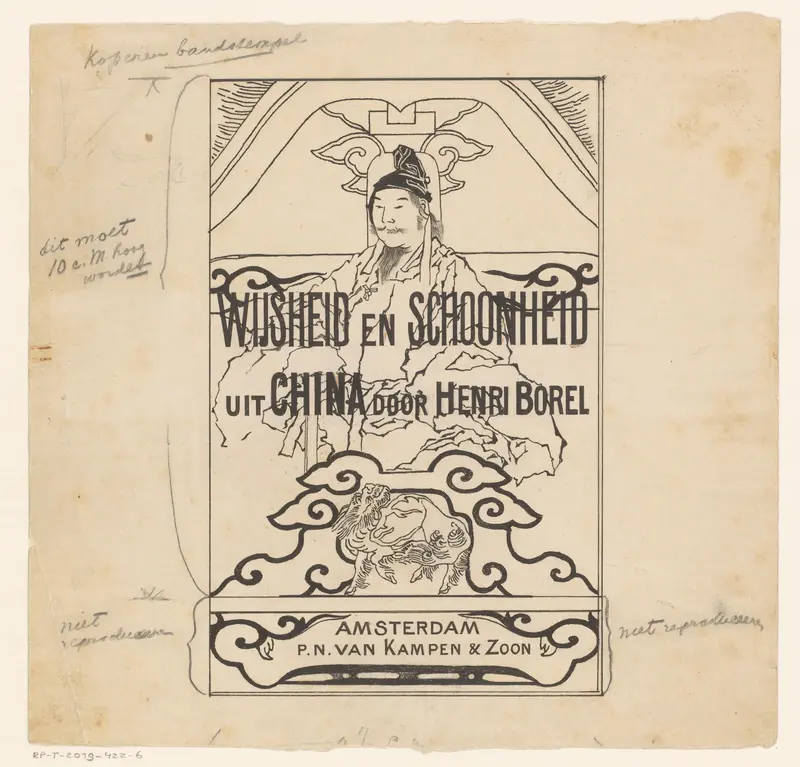 Koperen bandstempel
dit moet
10 c.M. hoog
worden
WIJSHEID EN SCHOONHEID
UIT CHINA DOOR HENRI BOREL
niet
reproduceeren
niet reproduceeren
AMSTERDAM
P.N. VAN KAMPEN & ZOON
RP-T-2019-422-6